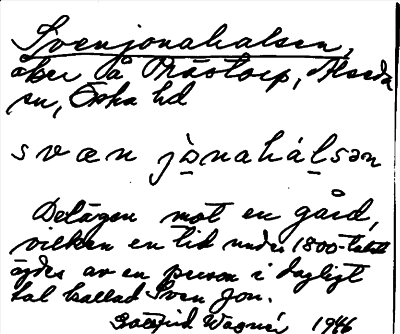 Svenjonahalsen,
åker å Prästorp, Alseda
sn, Östra hd
svæn jònahálsən
Belägen mot en gård,
vilken en tid under 1800-talet
ägdes av en person i dagligt
tal kallad Sven Jon.
Gotfrid Wagnér 1946